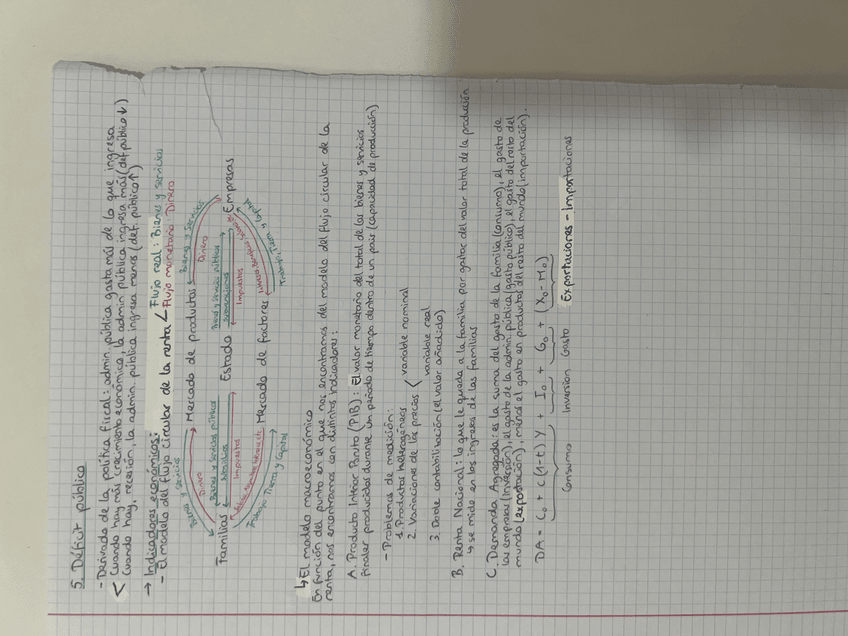 5. Déficit público
- Derivado de la política fiscal: admin. pública gasta más de lo que ingresa
< Cuando hay más crecimiento económico, la admin. pública ingresa más (def. público ↓)
cuando hay, recesión, la admin. pública ingresa menos (def. público ↑)
→ Indicadores económicos:
- El modelo del flujo circular de la renta < Flujo real: Bienes y servicios
Flujo monetario: Dinero
Bienes y Servicios
Dinero
Mercado de productos
Bienes y Servicios
Dinero
Familias
Bienes y Servicios públicos
Impuestos
Estado
Bienes y Servicios públicos
subvenciones
Impuestos
Empresas
Trabajo Tierra y Capital
Mercado de factores
Trabajo Tierra y Capital
↳ El modelo macroeconómico
En función del punto en el que nos encontramos del modelo del flujo circular de la
renta, nos encontramos con distintos indicadores:
A. Producto Interior Bruto (PIB): El valor monetario del total de los bienes y servicios
finales producidos durante un periodo de tiempo dentro de un país (capacidad de producción)
- Problemas de medición:
1. Productos heterogéneos
2. Variaciones de los precios < variable nominal
variable real
3. Doble contabilización (el valor añadido)
B. Renta Nacional: lo que le queda a la familia por gastar del valor total de la producción
↳ se mide en los ingresos de las familias
C. Demanda Agregada: es la suma del gasto de la familia (consumo), el gasto de
las empresas (inversión), el gasto de la admin. pública (gasto público), el gasto del resto del
mundo (exportación), menos el gasto en productos del resto del mundo (importación).
DA = C₀ + c(1-t)Y + I₀ + G₀ + (X₀ - M₀)
Consumo Inversion Gasto Exportaciones - Importaciones